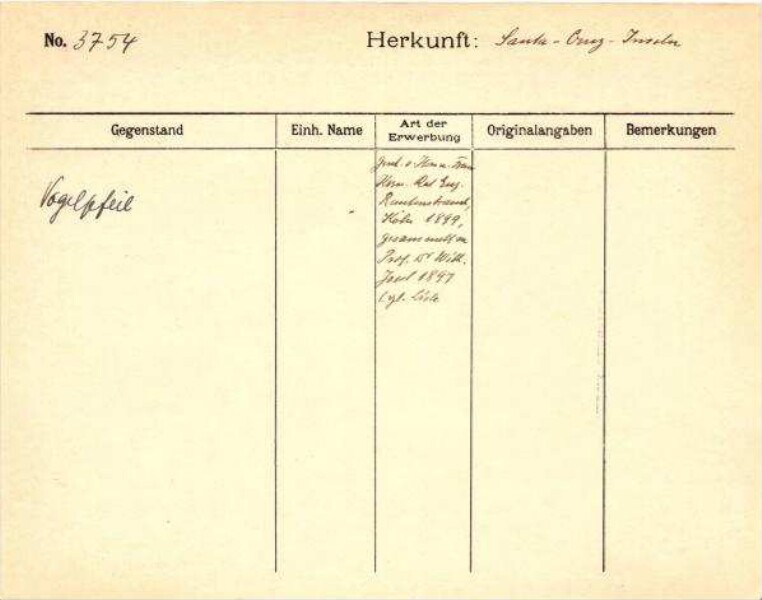 No. 3754
Herkunft: Santa-Cruz-Inseln
Gegenstand
Einh. Name
Art der Erwerbung
Originalangaben
Bemerkungen
Vogelpfeil
Gesch. v. Herrn u. Frau
Eug.
Rautenstrauch,
Köln 1899,
gesammelt von
Prof. Dr Wilh.
Joest 1897